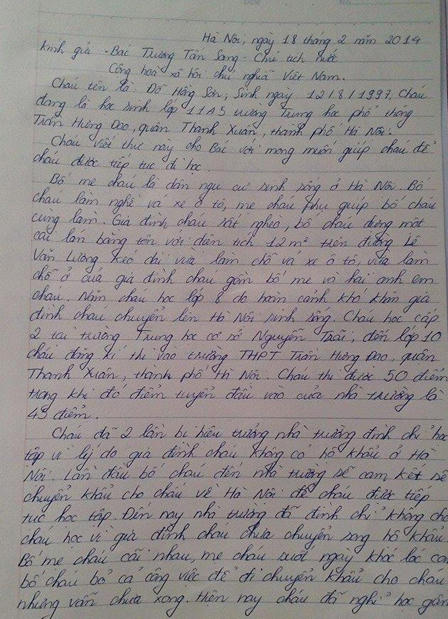 Hà Nội, ngày 18 tháng 2 năm 2014
Kính gửi - Bác Trương Tấn Sang - Chủ tịch nước
Cộng hoà xã hội chủ nghĩa Việt Nam.
Cháu tên là Đỗ Hồng Sơn, Sinh ngày 12/8/1997. Cháu
đang là học sinh lớp 11A5 trường Trung học phổ thông
Trần Hưng Đạo, quận Thanh Xuân, thành phố Hà Nội.
Cháu viết thư này cho Bác với mong muốn giúp cháu để
cháu được tiếp tục đi học.
Bố mẹ cháu là dân ngụ cư sinh sống ở Hà Nội. Bố
cháu làm nghề vá xe ô tô, mẹ cháu phụ giúp bố cháu
cùng làm. Gia đình cháu rất nghèo, bố cháu dựng một
cái lán bằng tôn với diện tích 12m² trên đường Lê
Văn Lương kéo dài vừa làm chỗ vá xe ô tô, vừa làm
chỗ ở của gia đình cháu gồm bố mẹ và hai anh em
cháu. Năm cháu học lớp 8 do hoàn cảnh khó khăn gia
đình cháu chuyển lên Hà Nội sinh sống. Cháu học cấp
2 tại trường Trung học cơ sở Nguyễn Trãi, đến lớp 10
cháu đăng kí thi vào trường THPT Trần Hưng Đạo, quận
Thanh Xuân, thành phố Hà Nội. Cháu thi được 50 điểm
trong khi đó điểm tuyển đầu vào của nhà trường là
45 điểm.
Cháu đã 2 lần bị hiệu trưởng nhà trường đình chỉ học
tập vì lý do gia đình cháu không có hộ khẩu ở Hà
Nội. Lần đầu bố cháu đến nhà trường sẽ cam kết sẽ
chuyển khẩu cho cháu về Hà Nội để cháu được tiếp
tục học tập. Đến nay nhà trường đã đình chỉ không cho
cháu học vì gia đình cháu chưa chuyển song hộ khẩu.
Bố mẹ cháu cãi nhau, mẹ cháu suốt ngày khóc lóc còn
bố cháu bỏ cả công việc để đi chuyển khẩu cho cháu
nhưng vẫn chưa xong. Hiện nay cháu đã nghỉ học gần